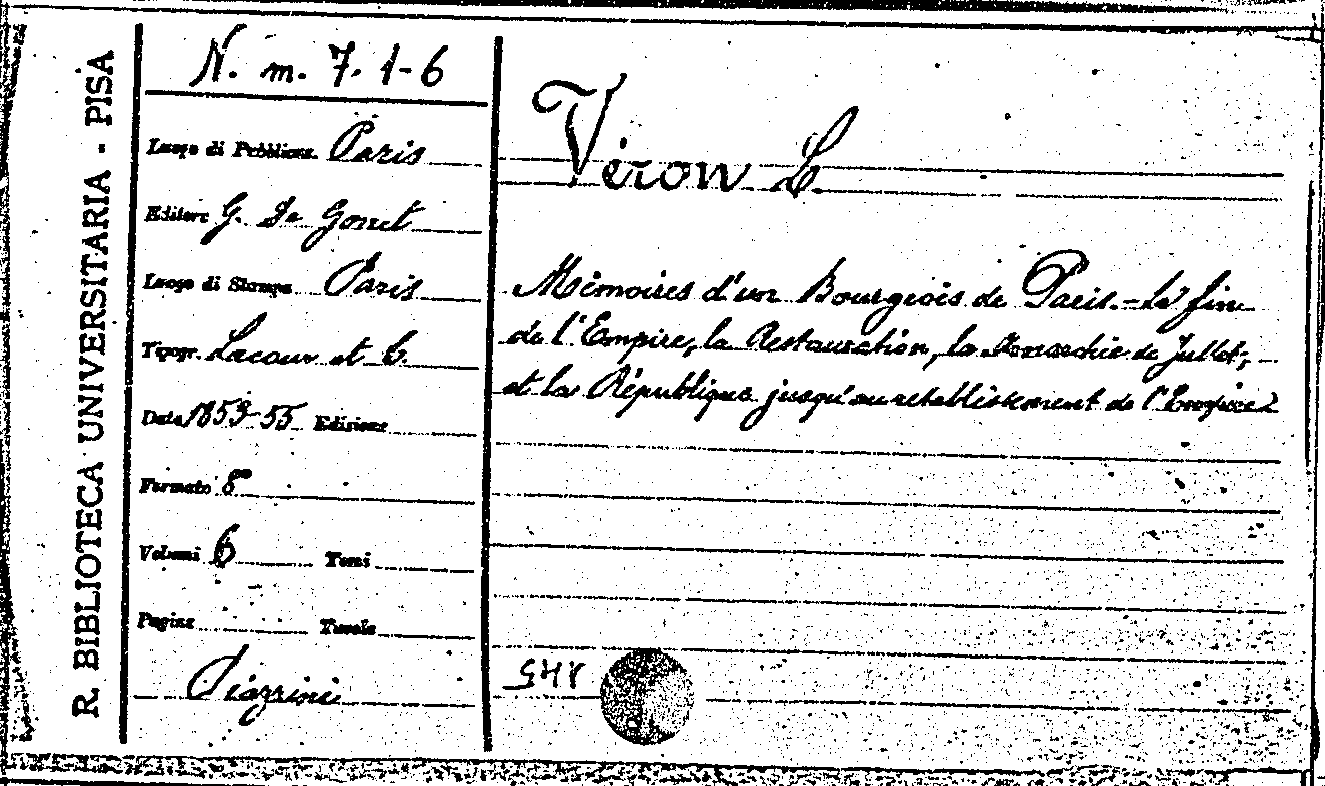 R. BIBLIOTECA UNIVERSITARIA - PISA
N. m. 7. 1-6
Luogo di Pubblicaz. Paris
Editore G. De Gonet
Luogo di Stampa Paris
Tipogr. Lacour et C.
Data 1853-55 Edizione
Formato 8°
Volumi 6 Tomi
Pagine Tavole
Piazzini
Véron L.
Mémoires d'un Bourgeois de Paris. - La fin
de l'Empire, la Restauration, la Monarchie de Juillet,
et la République jusqu'au retablissement de l'Empire
548